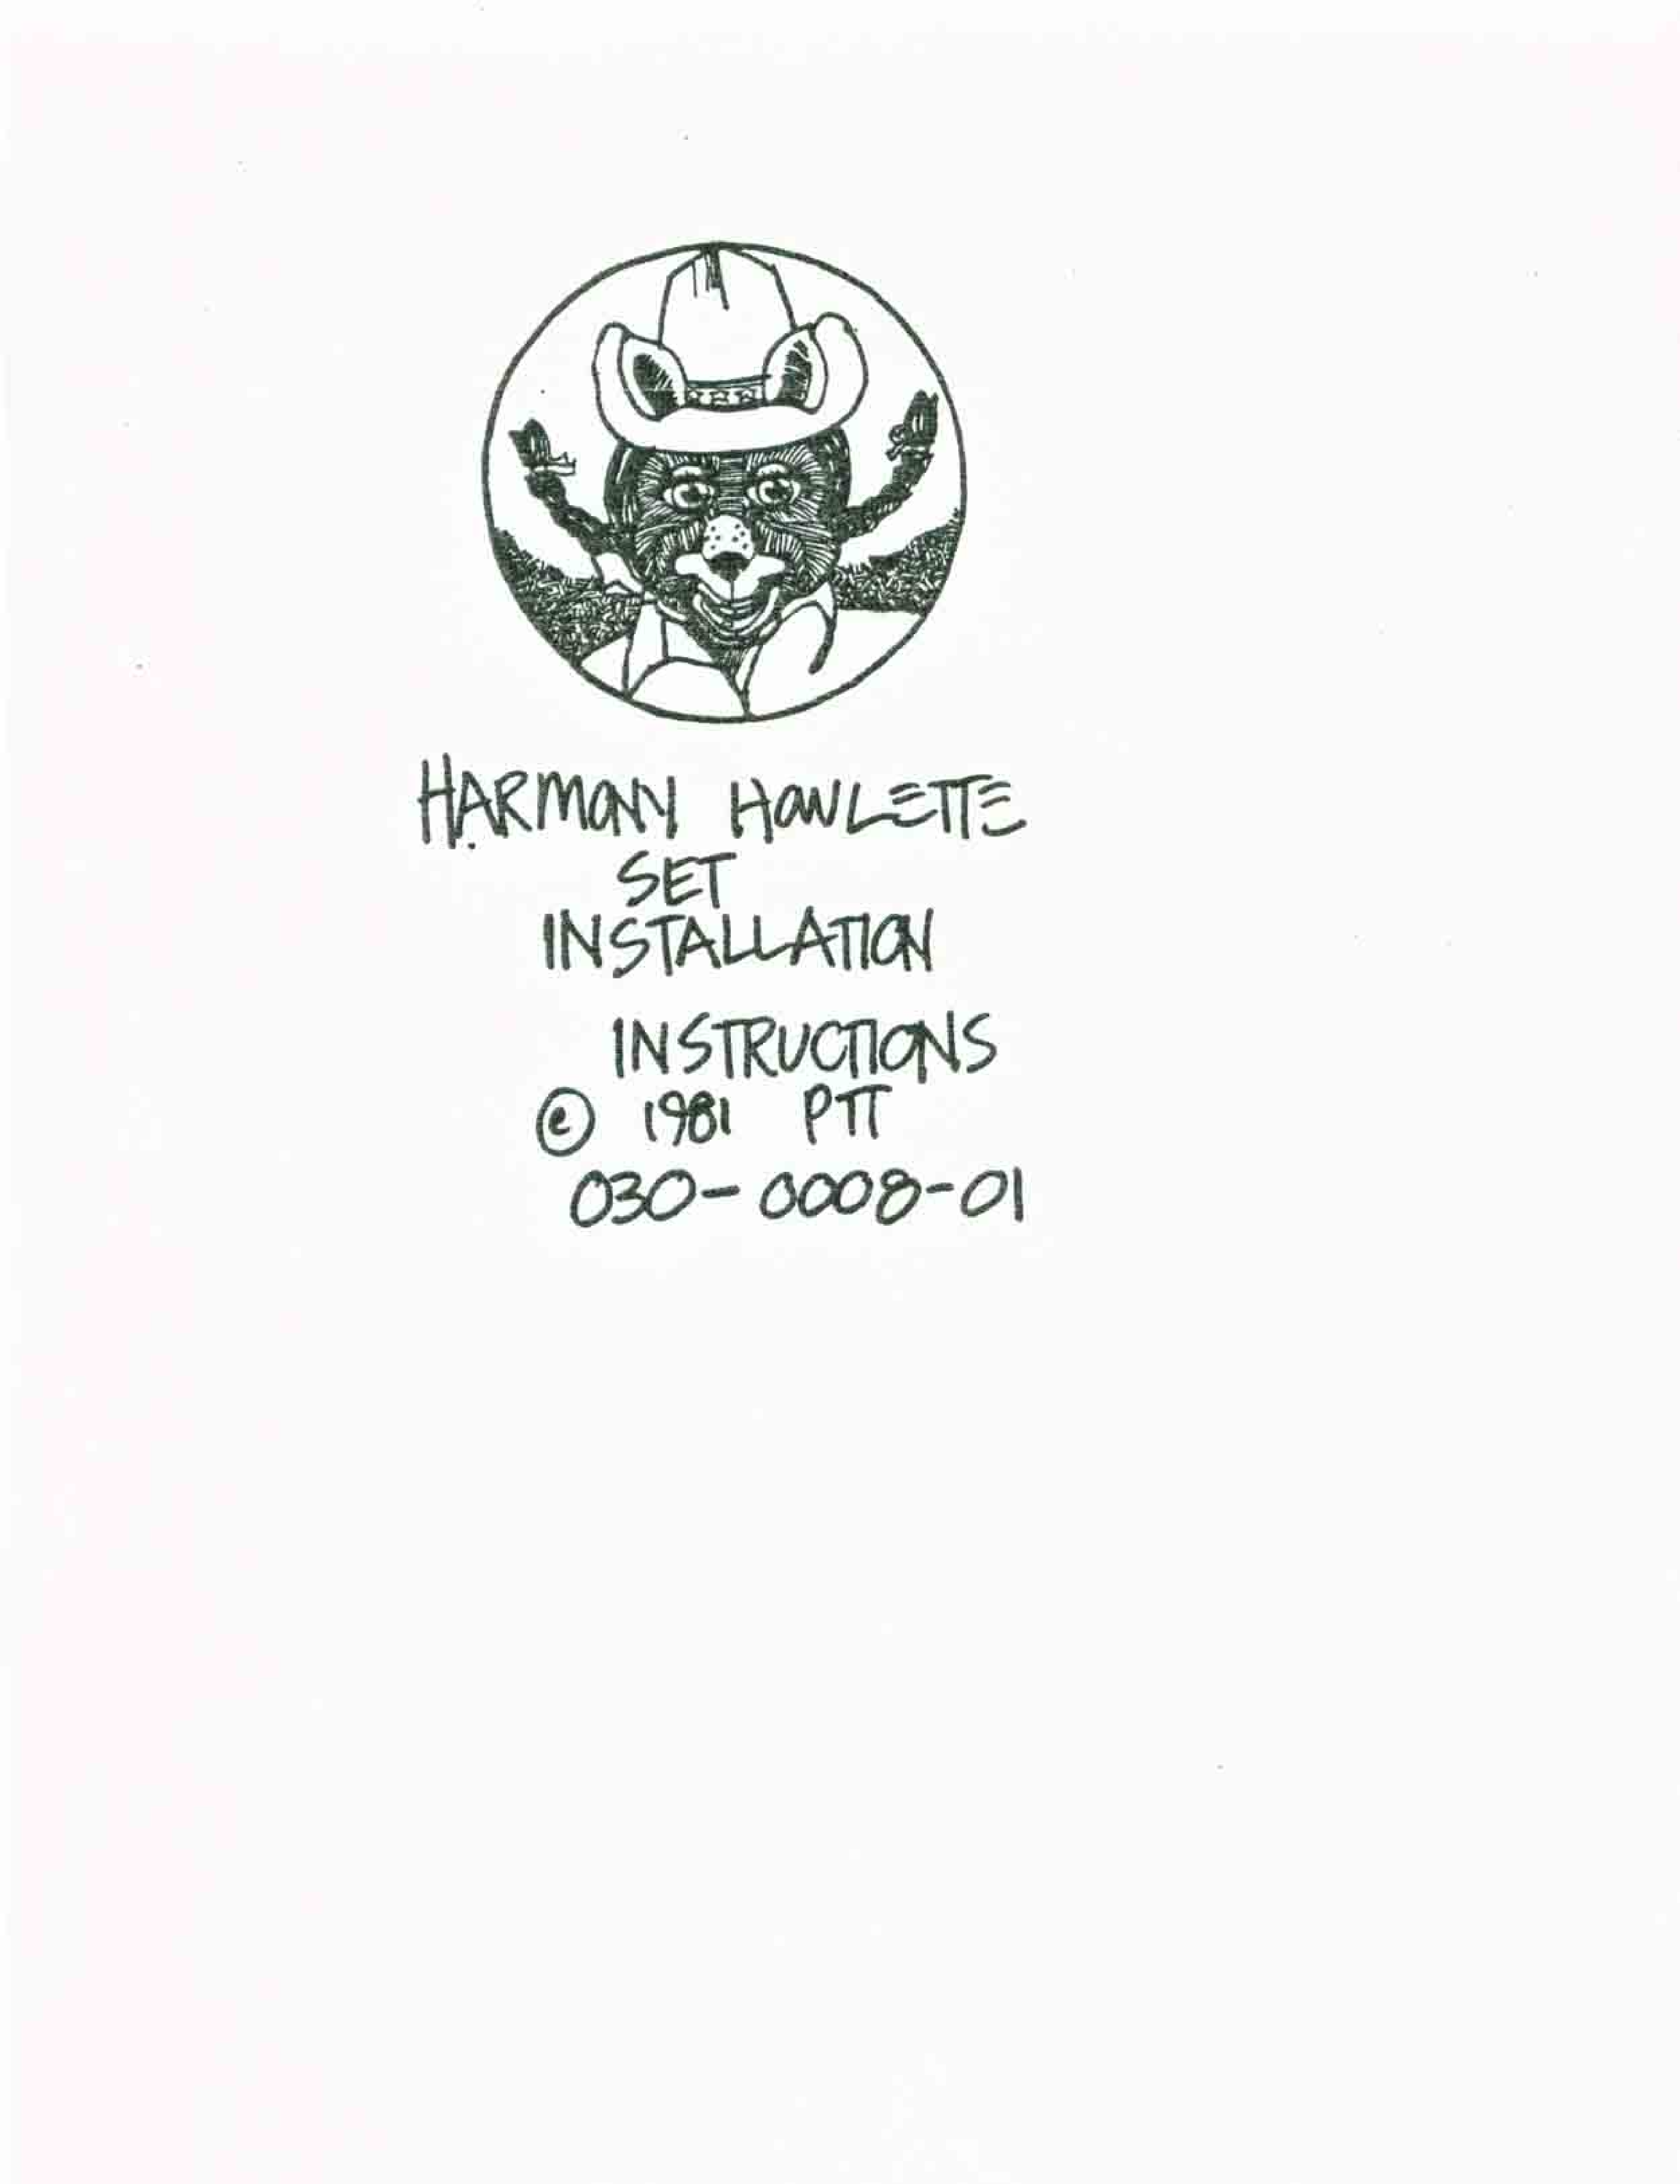 HARMONY HOWLETTE
SET
INSTALLATION
INSTRUCTIONS
© 1981 PTT
030-0008-01